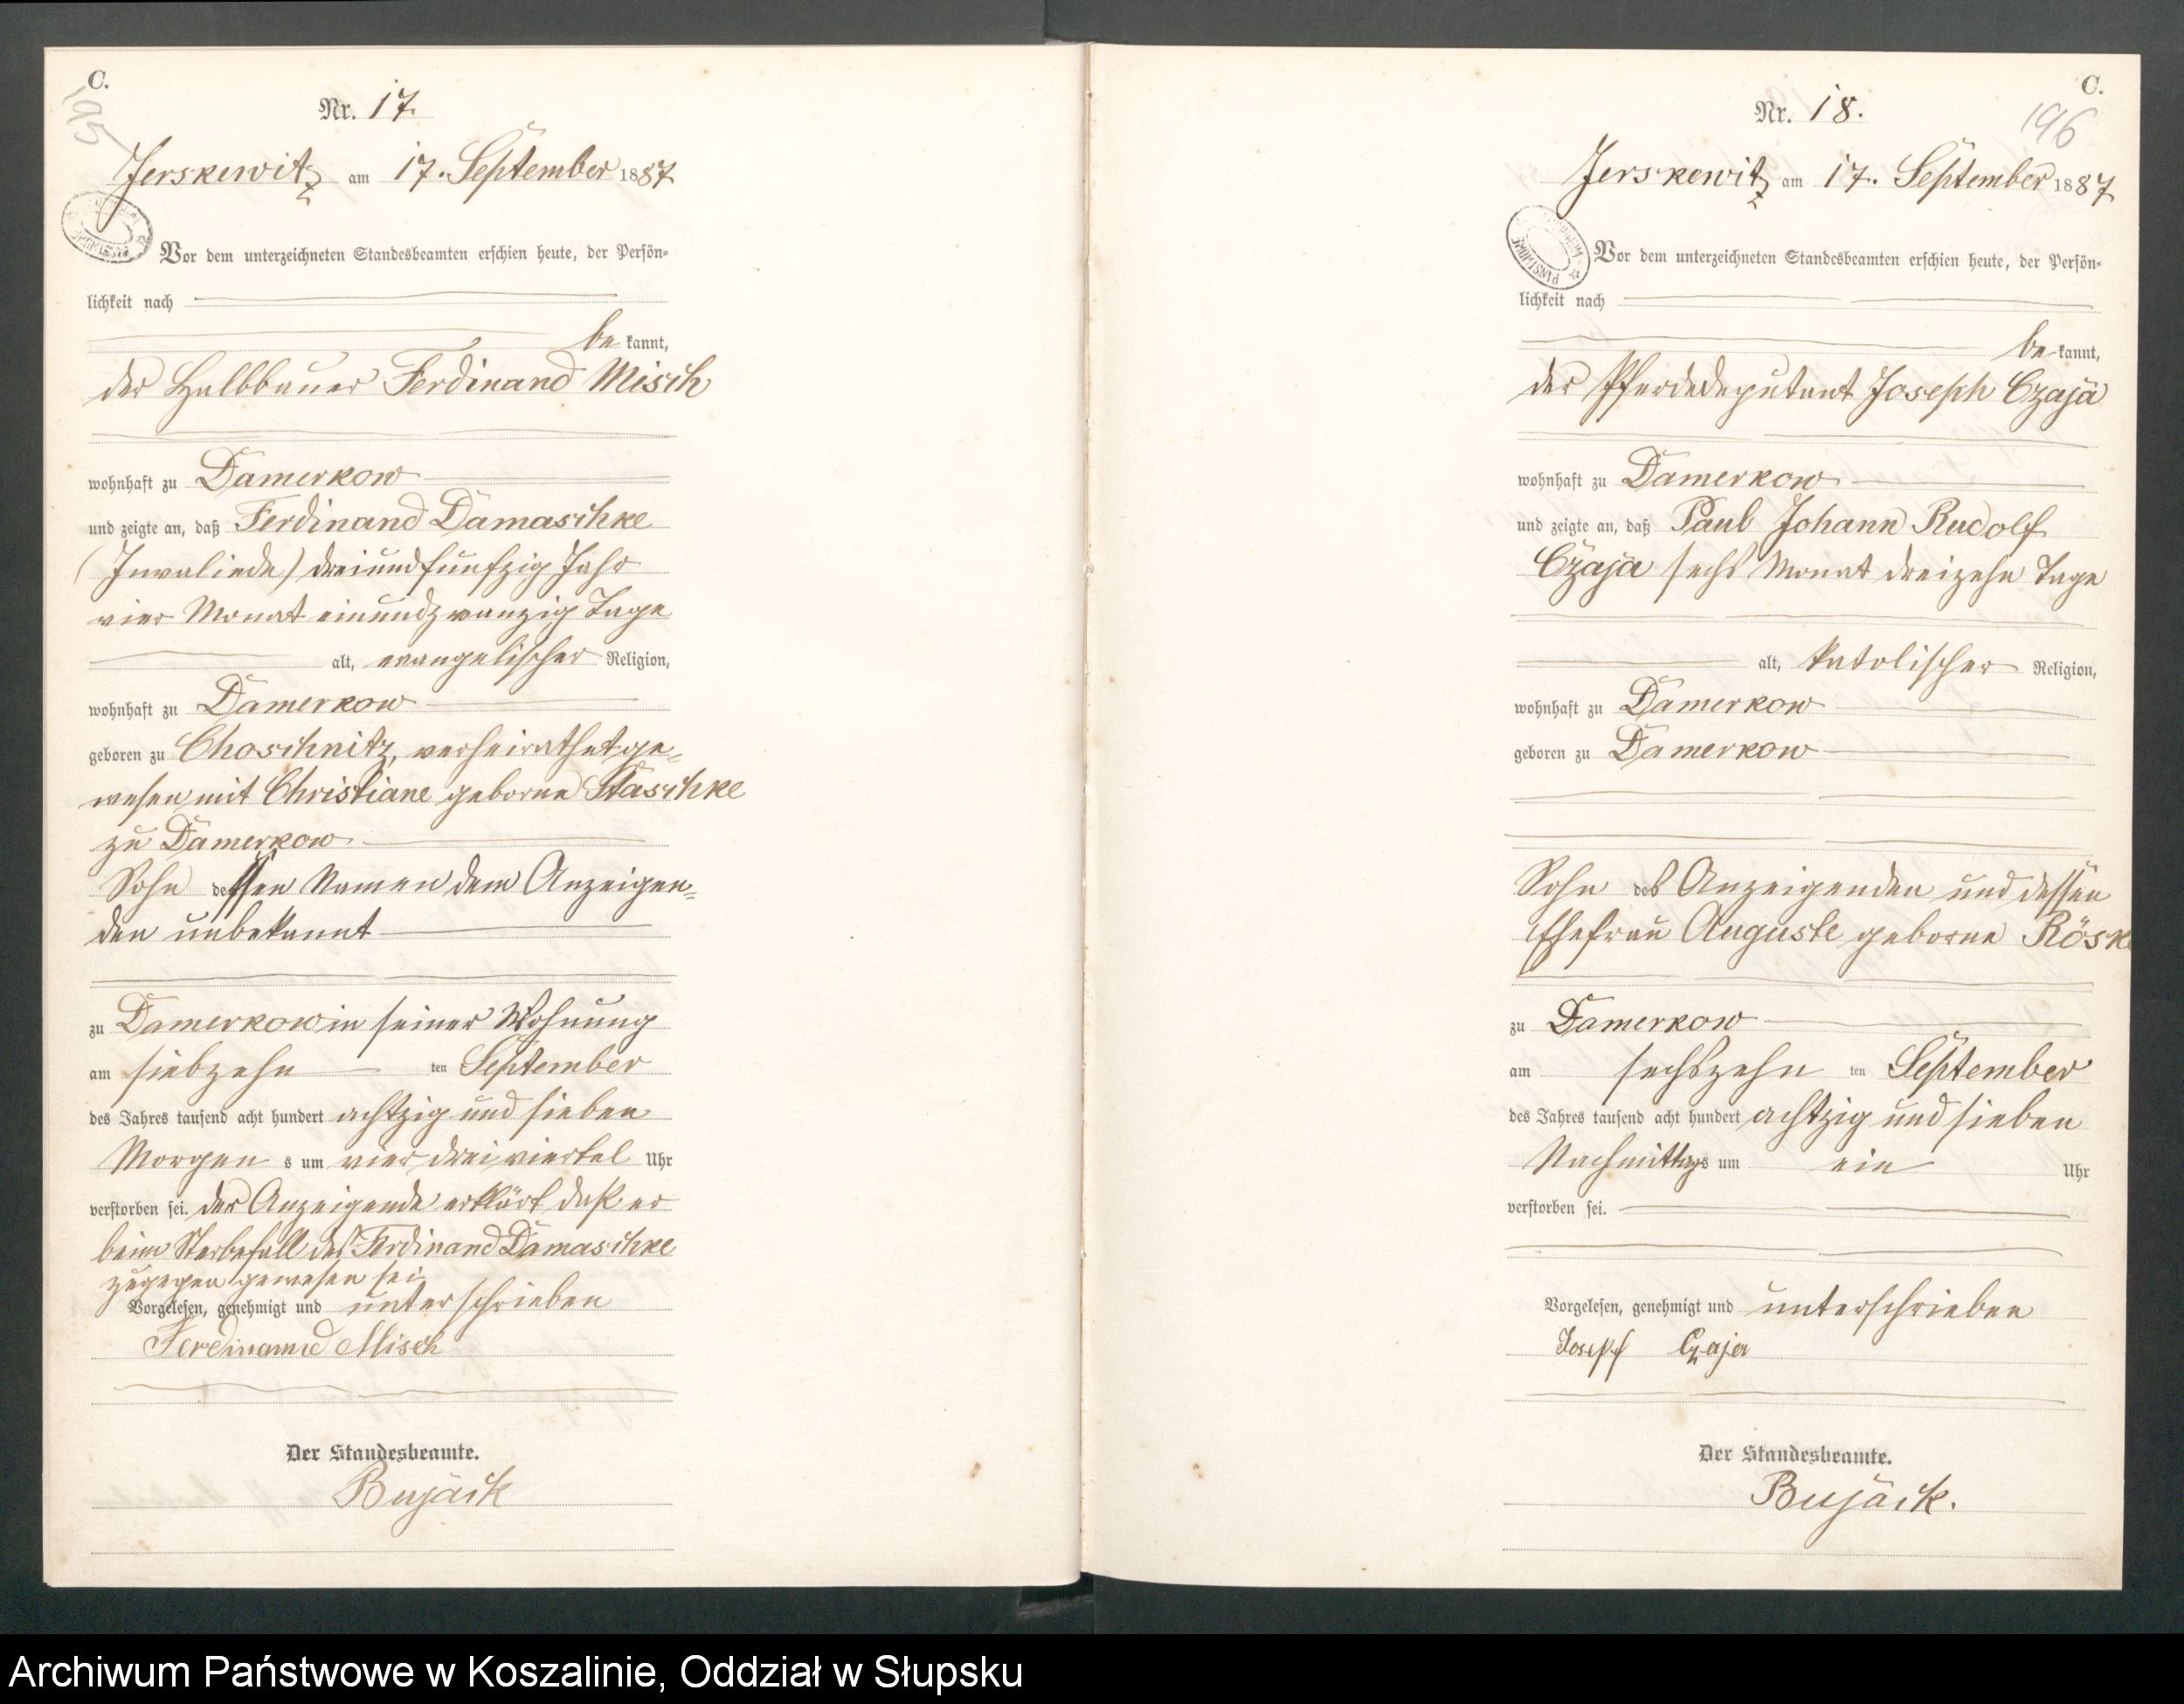 C.
195
Nr. 17.
Jerskewitz am 17. September 1887
Vor dem unterzeichneten Standesbeamten erschien heute, der Persön-
lichkeit nach
be kannt,
der Halbbauer Ferdinand Misch
wohnhaft zu Damerkow
und zeigte an, daß Ferdinand Damaschke
(Invaliede) dreiundfunfzig Jahr
vier Monat einundzwanzig Tage
alt, evangelischer Religion,
wohnhaft zu Damerkow
geboren zu Choschnitz, verheirathet ge-
wesen mit Christiane geborne Staschke
zu Damerkow
Sohn dessen Namen dem Anzeigen-
den unbekannt
zu Damerkow in seiner Wohnung
am siebzehn ten September
des Jahres tausend acht hundert achtzig und sieben
Morgen s um vier dreiviertel Uhr
verstorben sei. der Anzeigende erklärt daß er
beim Sterbefall des Ferdinand Damaschke
zugegen gewesen sei
Vorgelesen, genehmigt und unterschrieben
Ferdinand Misch
Der Standesbeamte.
Bujäck
C.
196
Nr. 18.
Jerskewitz am 17. September 1887
Vor dem unterzeichneten Standesbeamten erschien heute, der Persön-
lichkeit nach
be kannt,
der Pferdedeputant Joseph Czaja
wohnhaft zu Damerkow
und zeigte an, daß Paul Johann Rudolf
Czaja sechs Monat dreizehn Tage
alt, katolischer Religion,
wohnhaft zu Damerkow
geboren zu Damerkow
Sohn des Anzeigenden und dessen
Ehefrau Auguste geborne Röske
zu Damerkow
am sechszehn ten September
des Jahres tausend acht hundert achtzig und sieben
Nachmittags um ein Uhr
verstorben sei.
Vorgelesen, genehmigt und unterschrieben
Josepf Czaja
Der Standesbeamte.
Bujäck.
Archiwum Państwowe w Koszalinie, Oddział w Słupsku